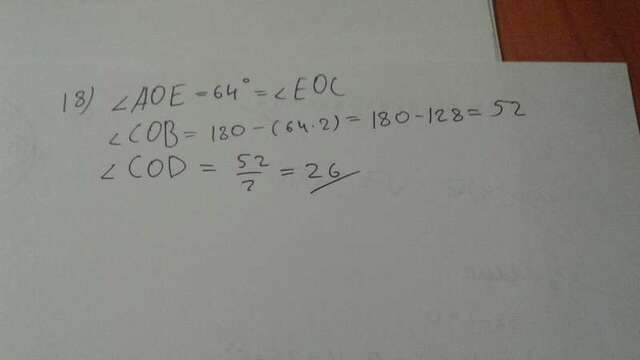 18) ∠AOE = 64° = ∠EOC
∠COB = 180 - (64·2) = 180 - 128 = 52
∠COD = 52/2 = 26